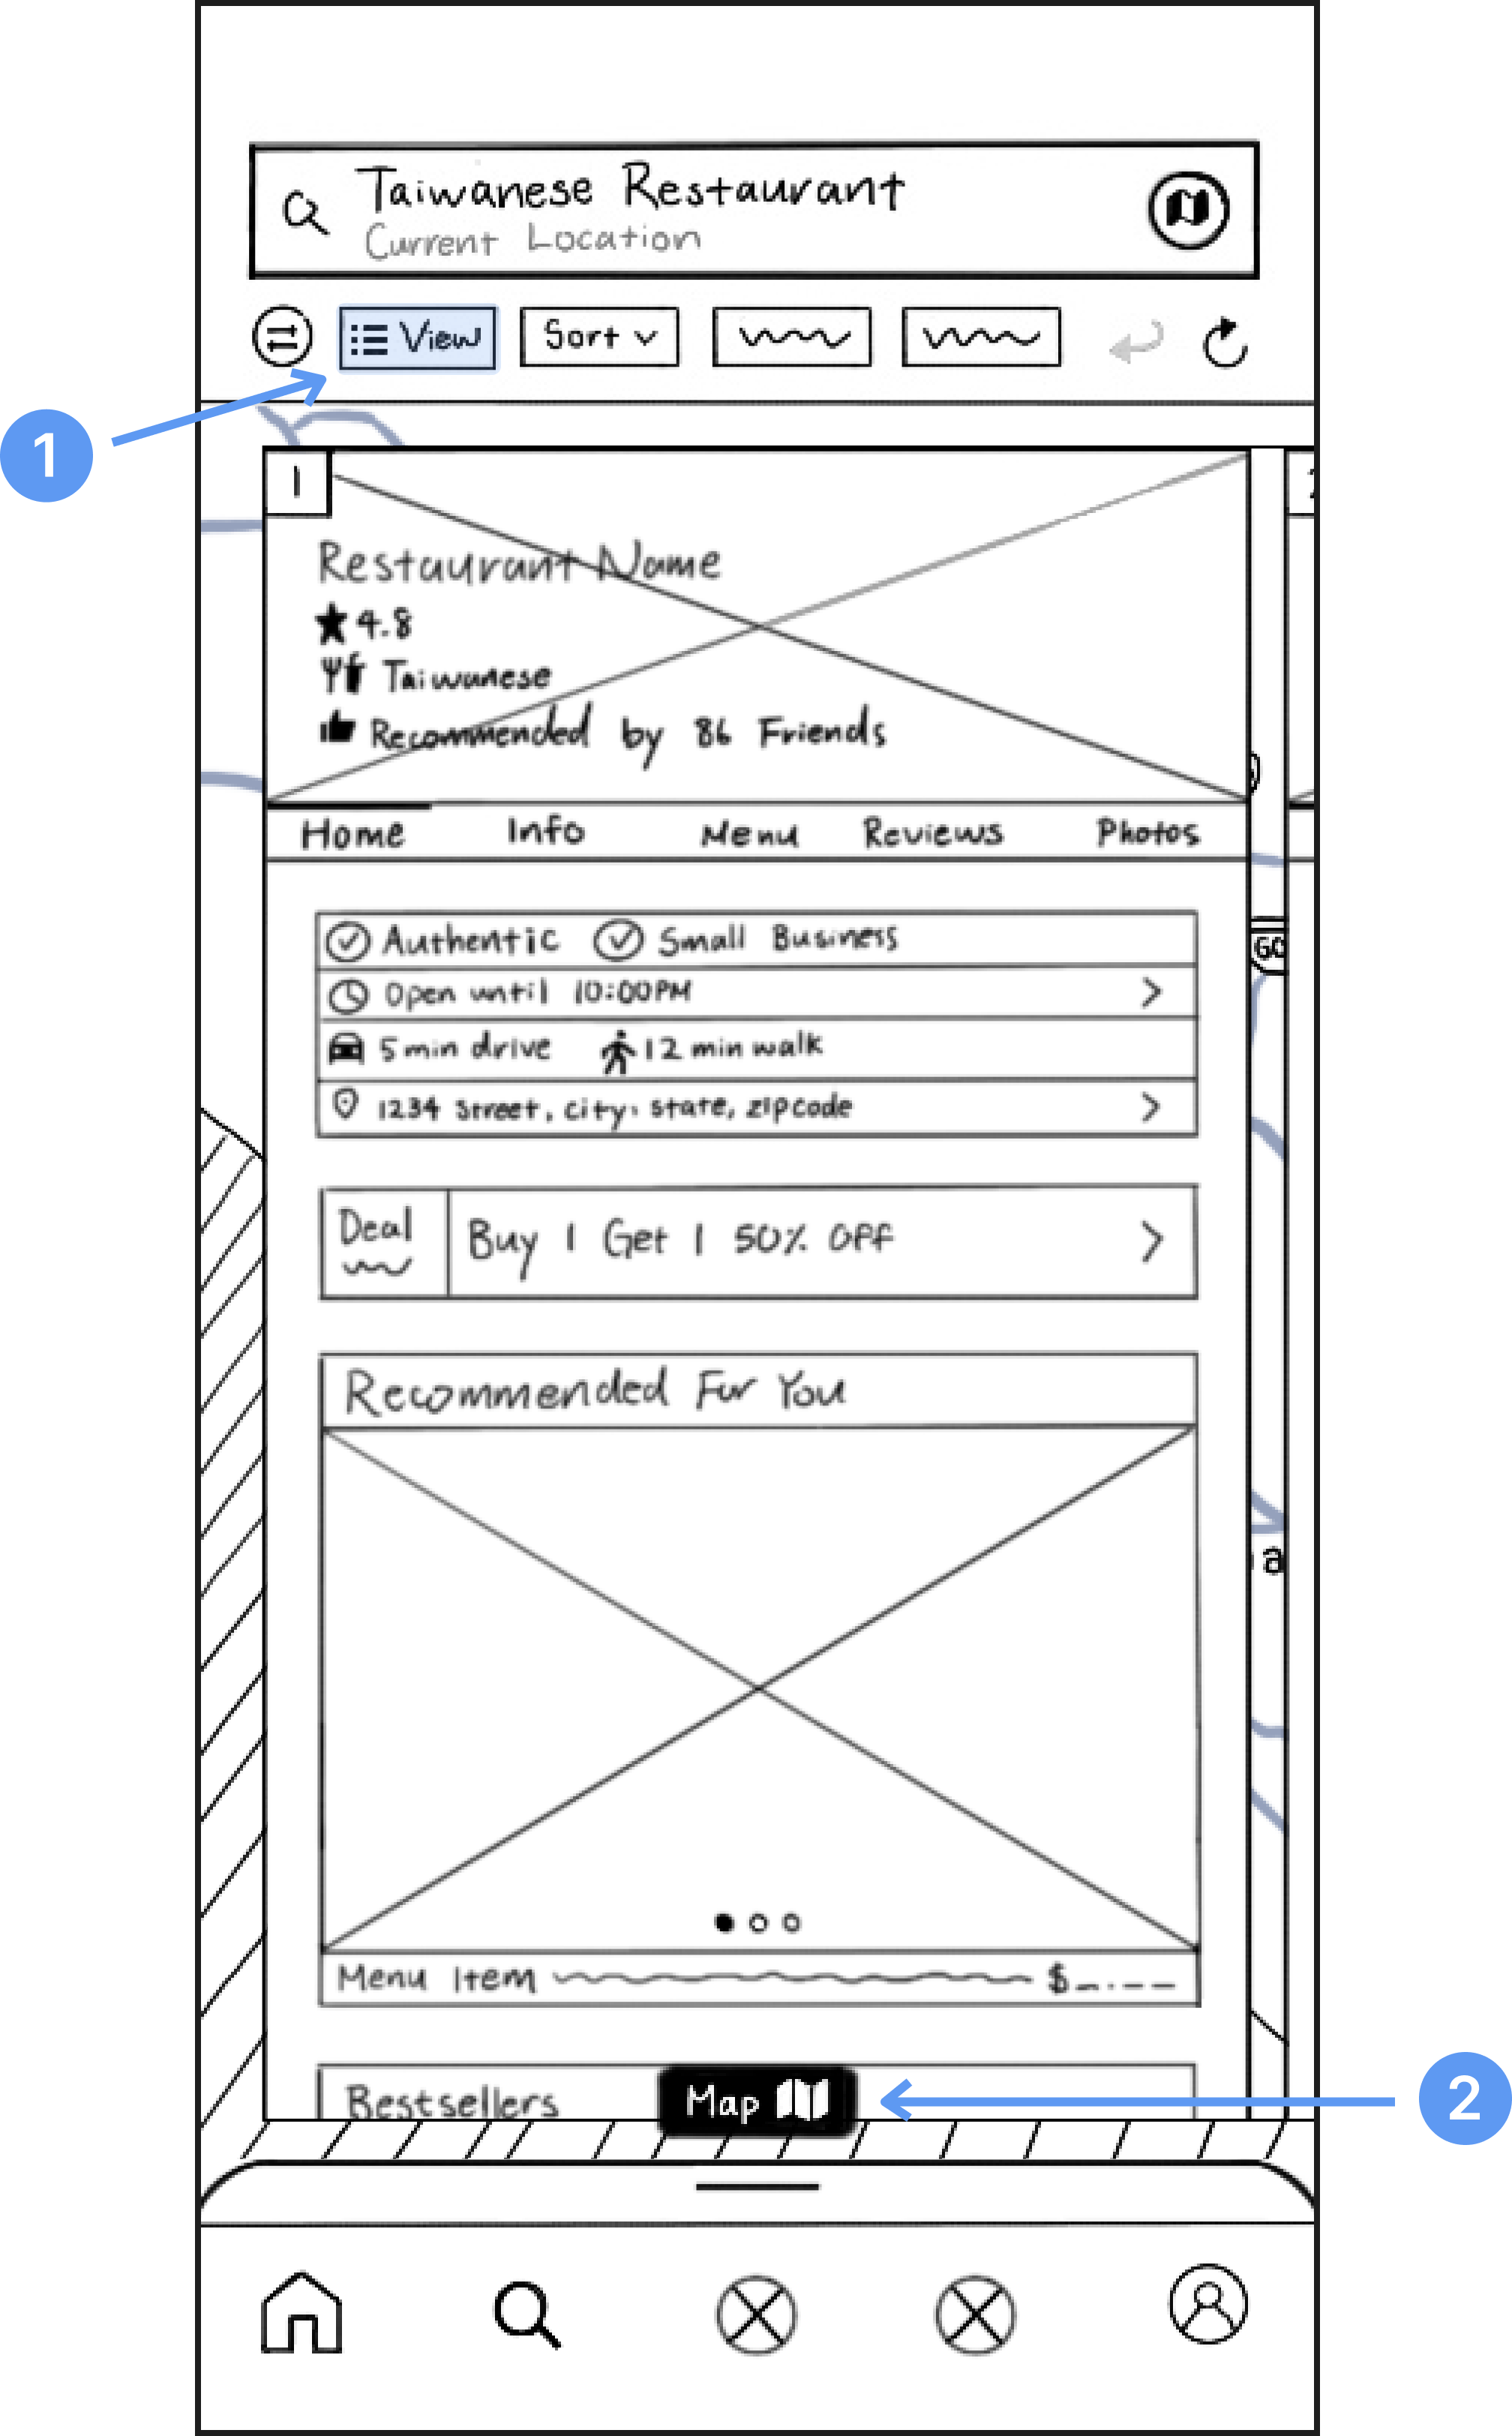 Taiwanese Restaurant
Current Location
View
Sort
1
1
Restaurant Name
4.8
Taiwanese
Recommended by 86 Friends
Home Info Menu Reviews Photos
Authentic Small Business
Open until 10:00PM
GO
5 min drive 12 min walk
1234 street, city, state, zipcode
Deal
Buy 1 Get 1 50% Off
Recommended For You
a
Menu Item $_.__
Bestsellers
Map
2